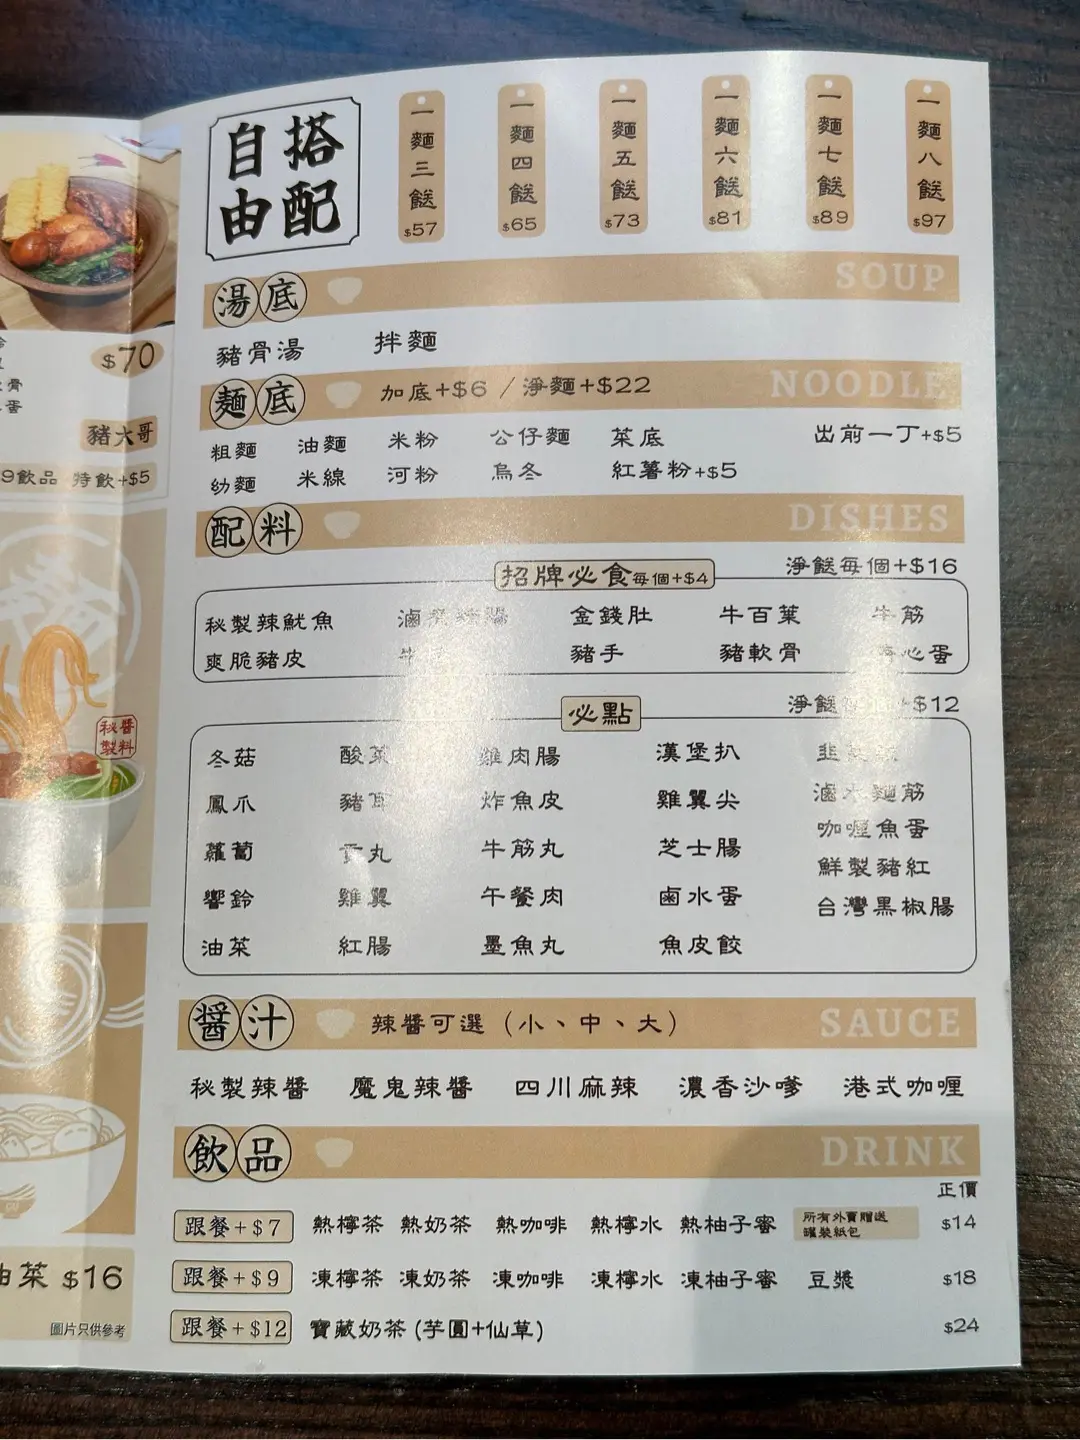 自由
搭配
一麵三餸 $57
一麵四餸 $65
一麵五餸 $73
一麵六餸 $81
一麵七餸 $89
一麵八餸 $97
湯底 SOUP
豬骨湯 拌麵
麵底 加底+$6 / 淨麵+$22 NOODLE
粗麵 油麵 米粉 公仔麵 菜底 出前一丁+$5
幼麵 米線 河粉 烏冬 紅薯粉+$5
配料 DISHES
淨餸每個+$16
招牌必食每個+$4
秘製辣魷魚 金錢肚 牛百葉 牛筋
爽脆豬皮 豬手 豬軟骨 心蛋
必點
淨餸 +$12
冬菇 酸菜 雞肉腸 漢堡扒
鳳爪 豬 炸魚皮 雞翼尖 滷水麵筋
蘿蔔 貢丸 牛筋丸 芝士腸 咖喱魚蛋
響鈴 雞翼 午餐肉 鹵水蛋 鮮製豬紅
油菜 紅腸 墨魚丸 魚皮餃 台灣黑椒腸
醬汁 辣醬可選（小、中、大） SAUCE
秘製辣醬 魔鬼辣醬 四川麻辣 濃香沙嗲 港式咖喱
飲品 DRINK
正價
跟餐+$7 熱檸茶 熱奶茶 熱咖啡 熱檸水 熱柚子蜜 所有外賣贈送罐裝紙包 $14
跟餐+$9 凍檸茶 凍奶茶 凍咖啡 凍檸水 凍柚子蜜 豆漿 $18
跟餐+$12 寶藏奶茶 (芋圓+仙草) $24
$70
骨
蛋
豬大哥
9飲品 特飲+$5
秘製
醬料
油菜 $16
圖片只供參考